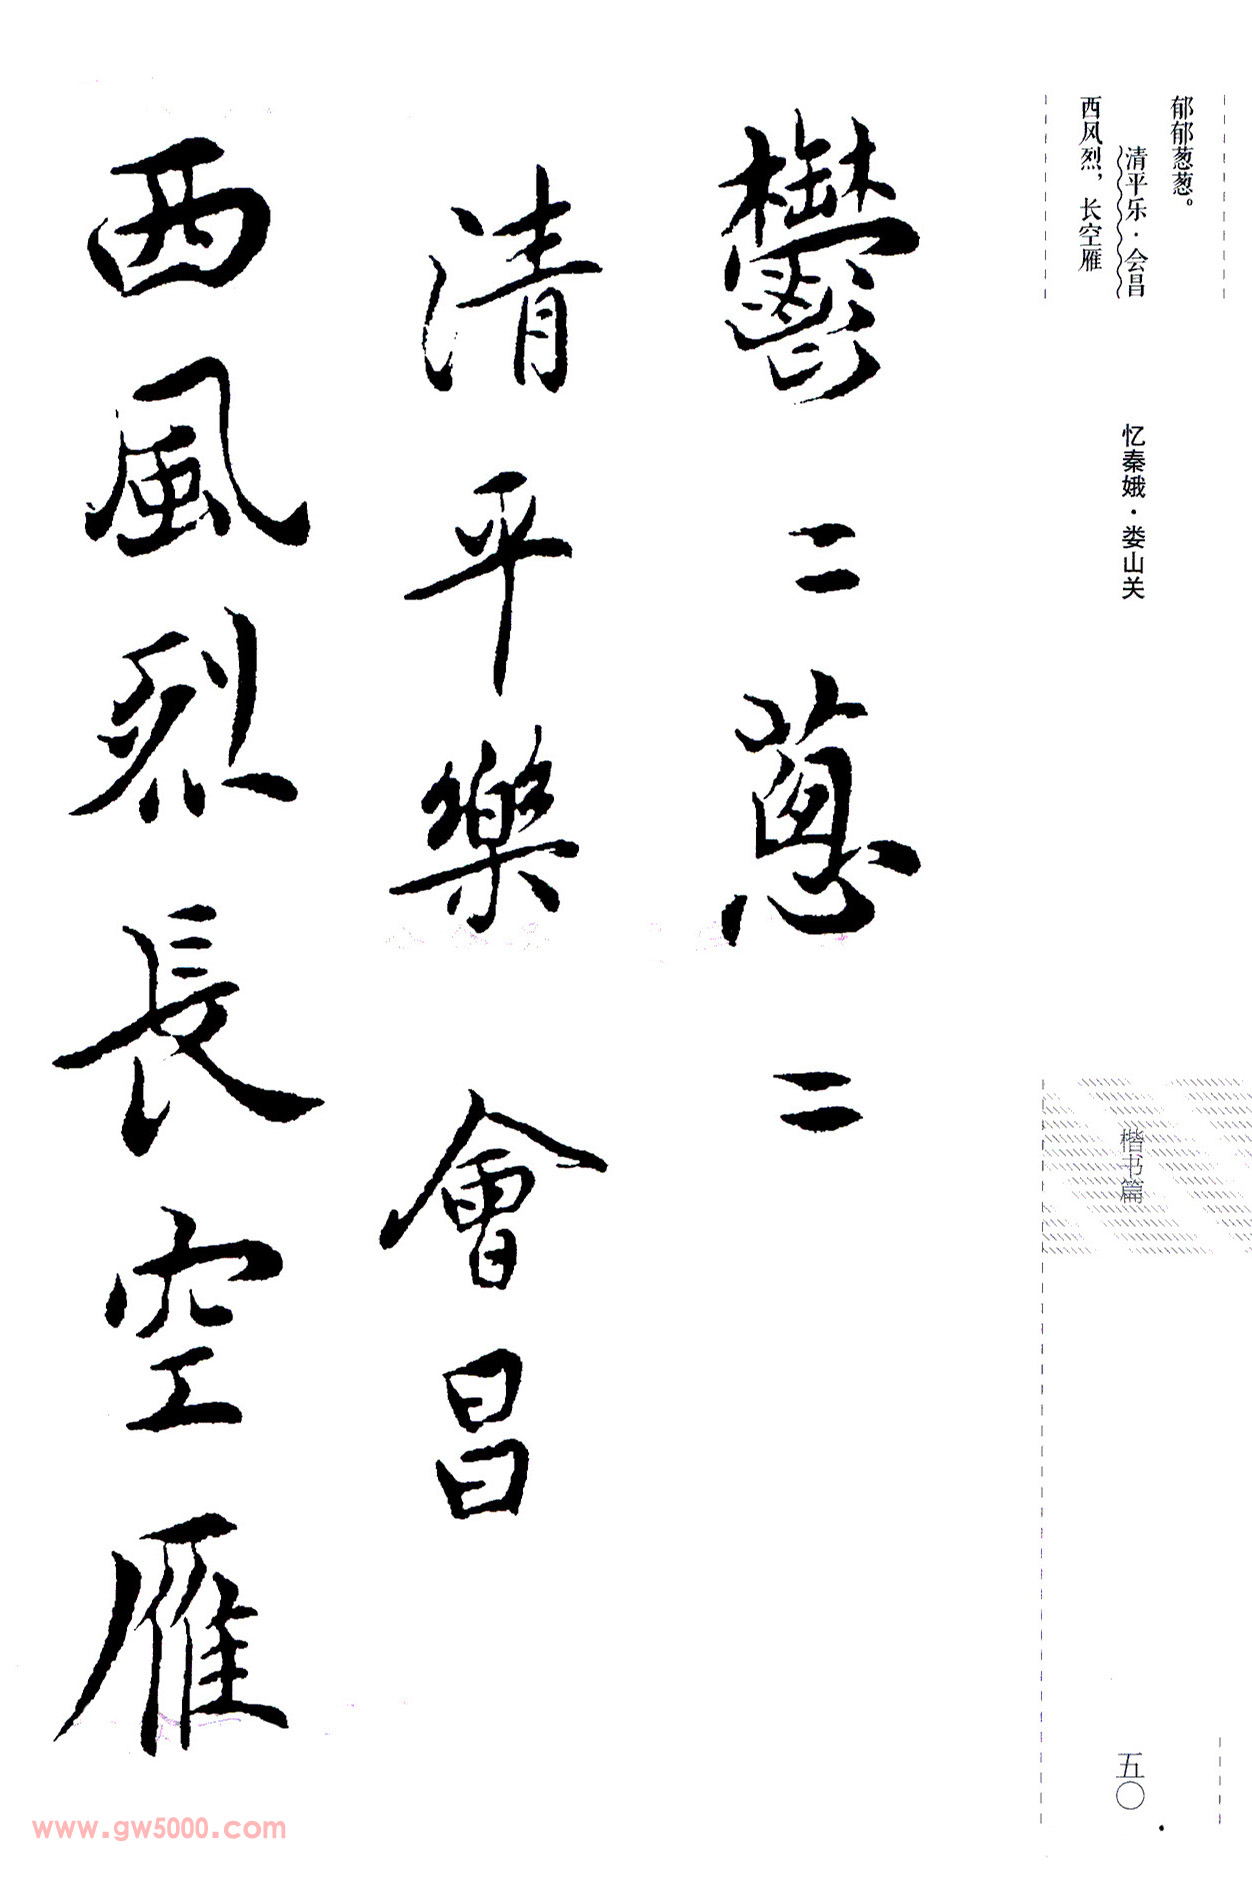 郁郁葱葱。
清平乐·会昌
西风烈，长空雁
忆秦娥·娄山关
楷书篇
五〇
鬱〻蔥〻
清平樂 會昌
西風烈長空雁
www.gw5000.com